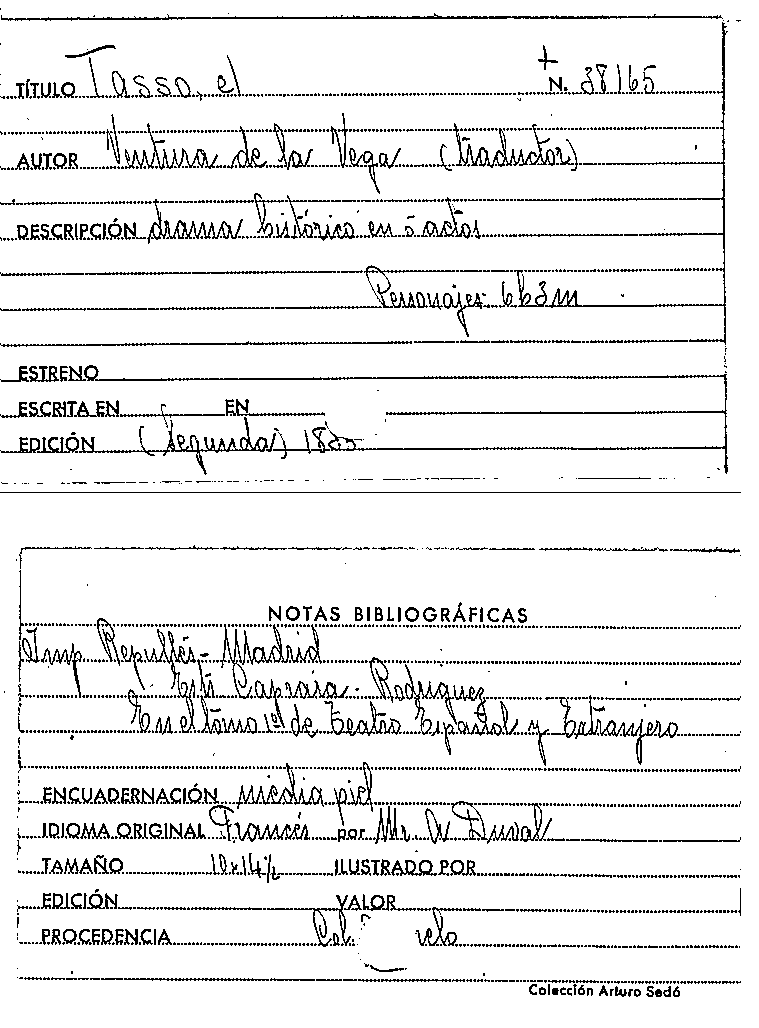 TÍTULO Tasso, el N. 38165
AUTOR Ventura de la Vega (traductor)
DESCRIPCIÓN drama histórico en 5 actos
Personajes 6h3m
ESTRENO
ESCRITA EN EN
EDICIÓN (Segunda)
NOTAS BIBLIOGRÁFICAS
Imp Repullés - Madrid
Rodriguez
En el tomo 1º de Teatro Español y Extranjero
ENCUADERNACIÓN media piel
IDIOMA ORIGINAL Francés por Mr. A Duval
TAMAÑO 10x14½ ILUSTRADO POR
EDICIÓN VALOR
PROCEDENCIA Col.
Colección Arturo Sedó